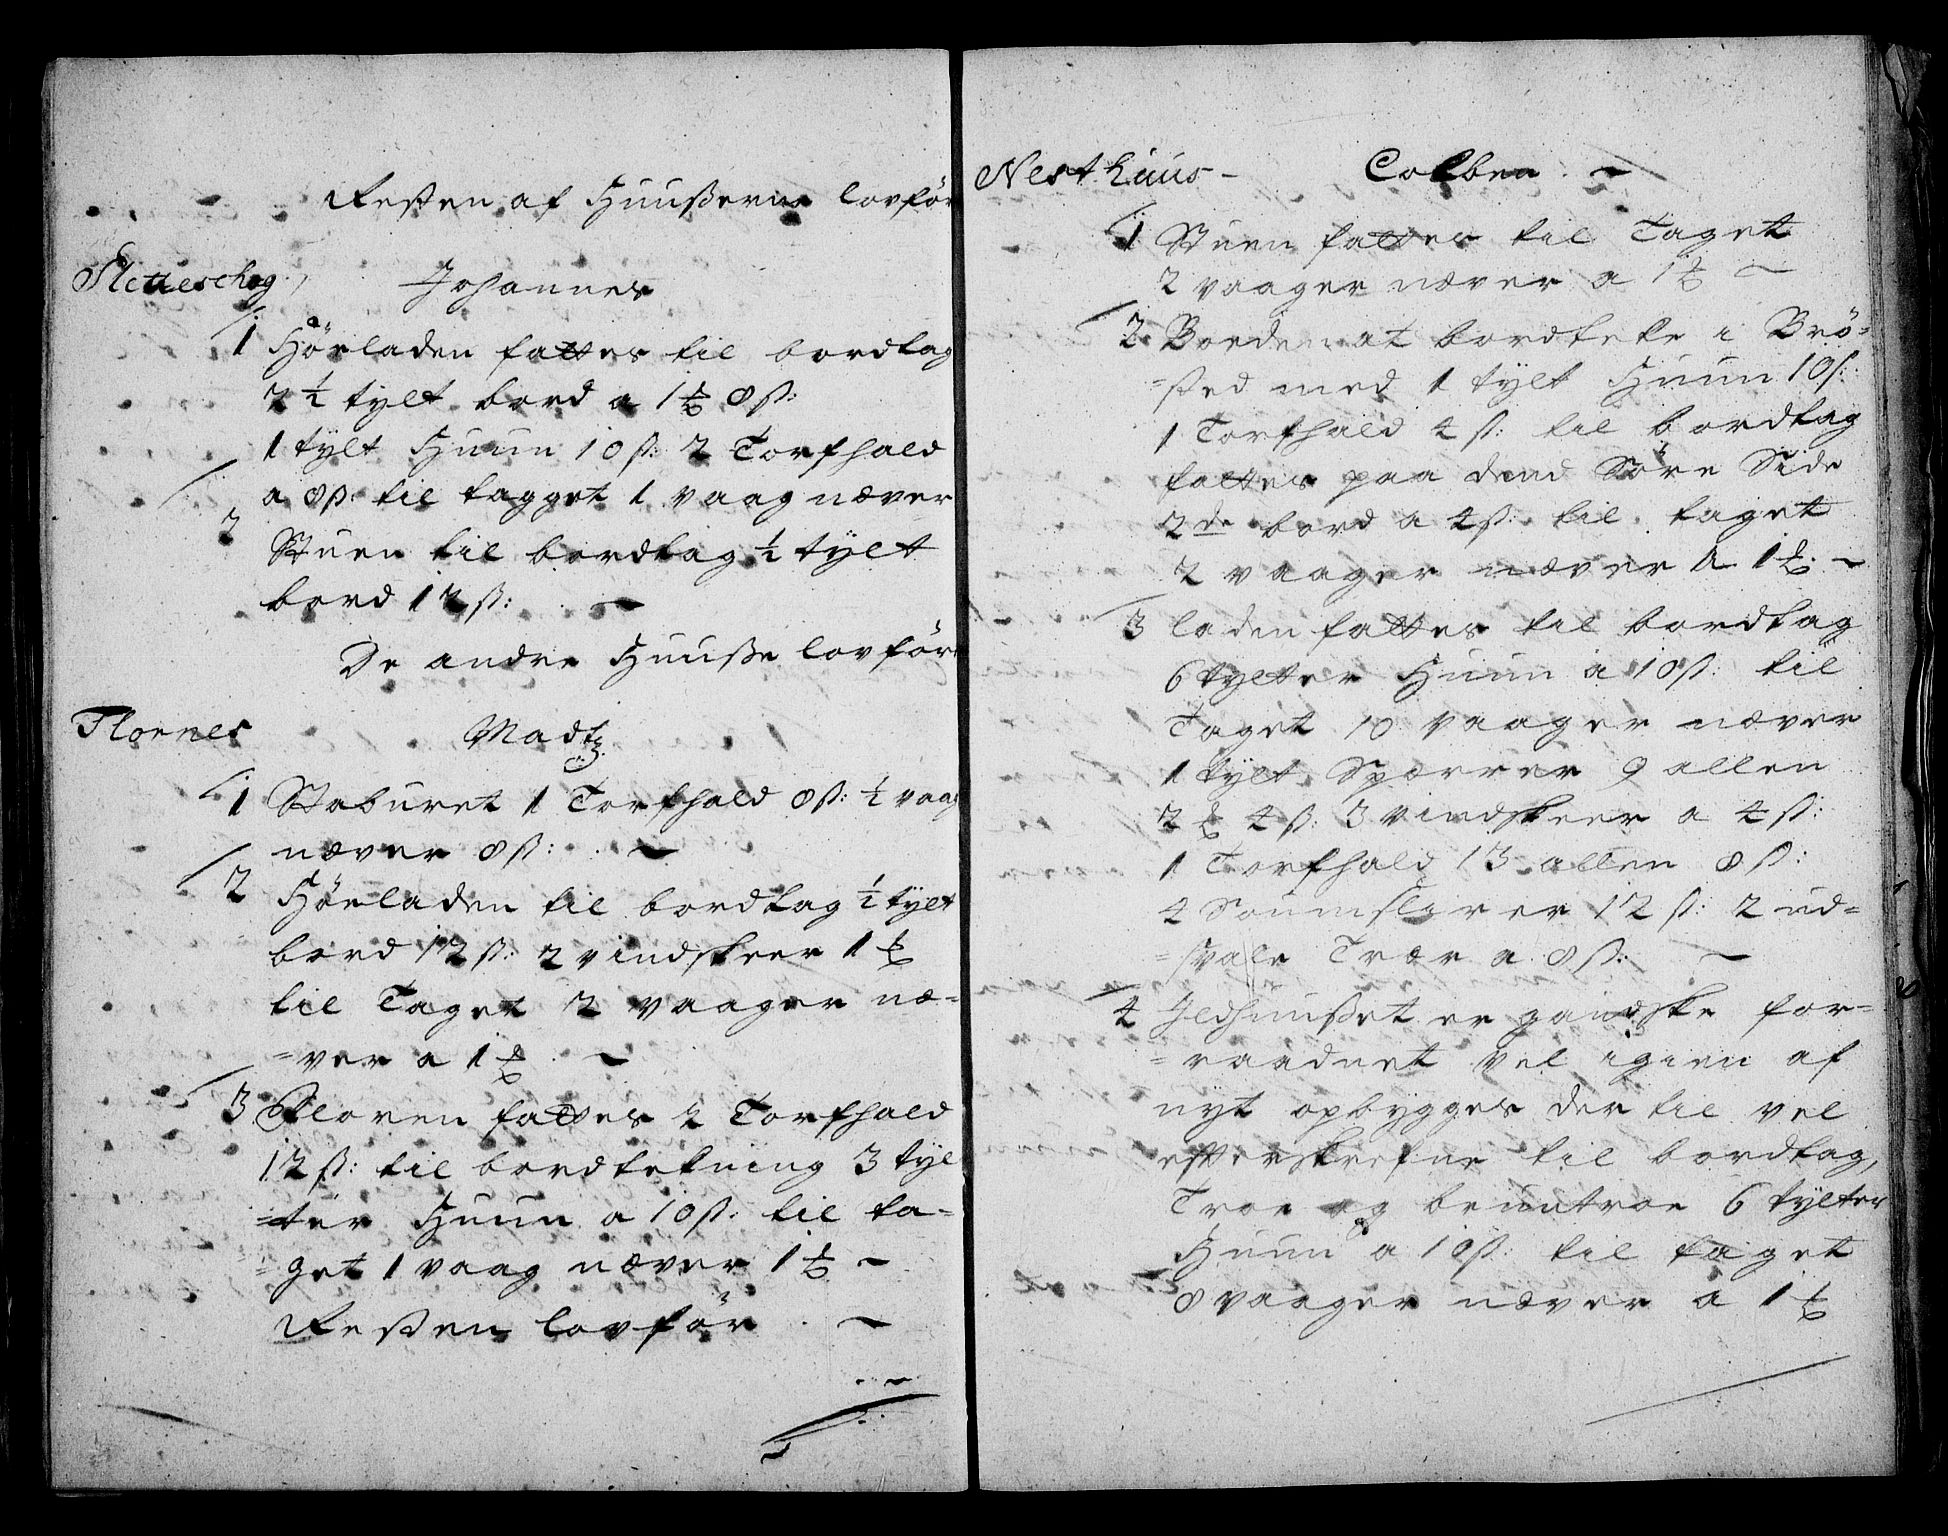 Resten af Huußerne lovför
Sletteschog, Johannes
1 Hörladen fattes til bordtag
2 1/2 tylt bord a 1 ß 8 ß:
1 tylt Huun 10 ß: 2 Torfhald
a 8 ß: til tagget 1 vaag næver
2 Stuen til bordtag 1/2 tylt
bord 12 ß:
De andre Huuße lovför
Flornes Madtz
1 Staburet 1 Torfhald 8 ß: 1/2 vaag
næver 8 ß:
2 Hörladen til bordtag 1/2 tylt
bord 12 ß: 2 vindskeer 1
til Taget 2 vaager næ=
=ver a 1
3 Floren fattes 2 Torfhald
12 ß: til bordtekning 3 tyl
=ter Huun a 10 ß: til ta=
=get 1 vaag næver 1
Resten lovför
Nesthuus - Colben
1 Stuen fattes til Taget
2 vaager næver a 1
2 Boeden at bordteke i Brö=
=sted med 1 tylt Huun 10 ß:
1 Torfhald 4 ß: til bordtag
fattes paa dend Söre Side
2de bord a 4 ß: til taget
2 vaager næver a 1
3 laden fattes til bordtag
6 tylter Huun a 10 ß: til
Taget 10 vaager næver
1 tylt Sperrer 9 allen
2 4 ß: 3 vindskeer a 4 ß:
1 Torfhald 13 allen 8 ß:
4 12 ß: 2 ud=
=svale Trær a 8 ß:
4 Ildhuußet er gandske for=
=raadnet vel igien af
nyt opbygges der til vel
efterskrefne til bordtag,
Troe og beuntroe 6 tylter
Huun a 10 ß: til taget
8 vaager næver a 1